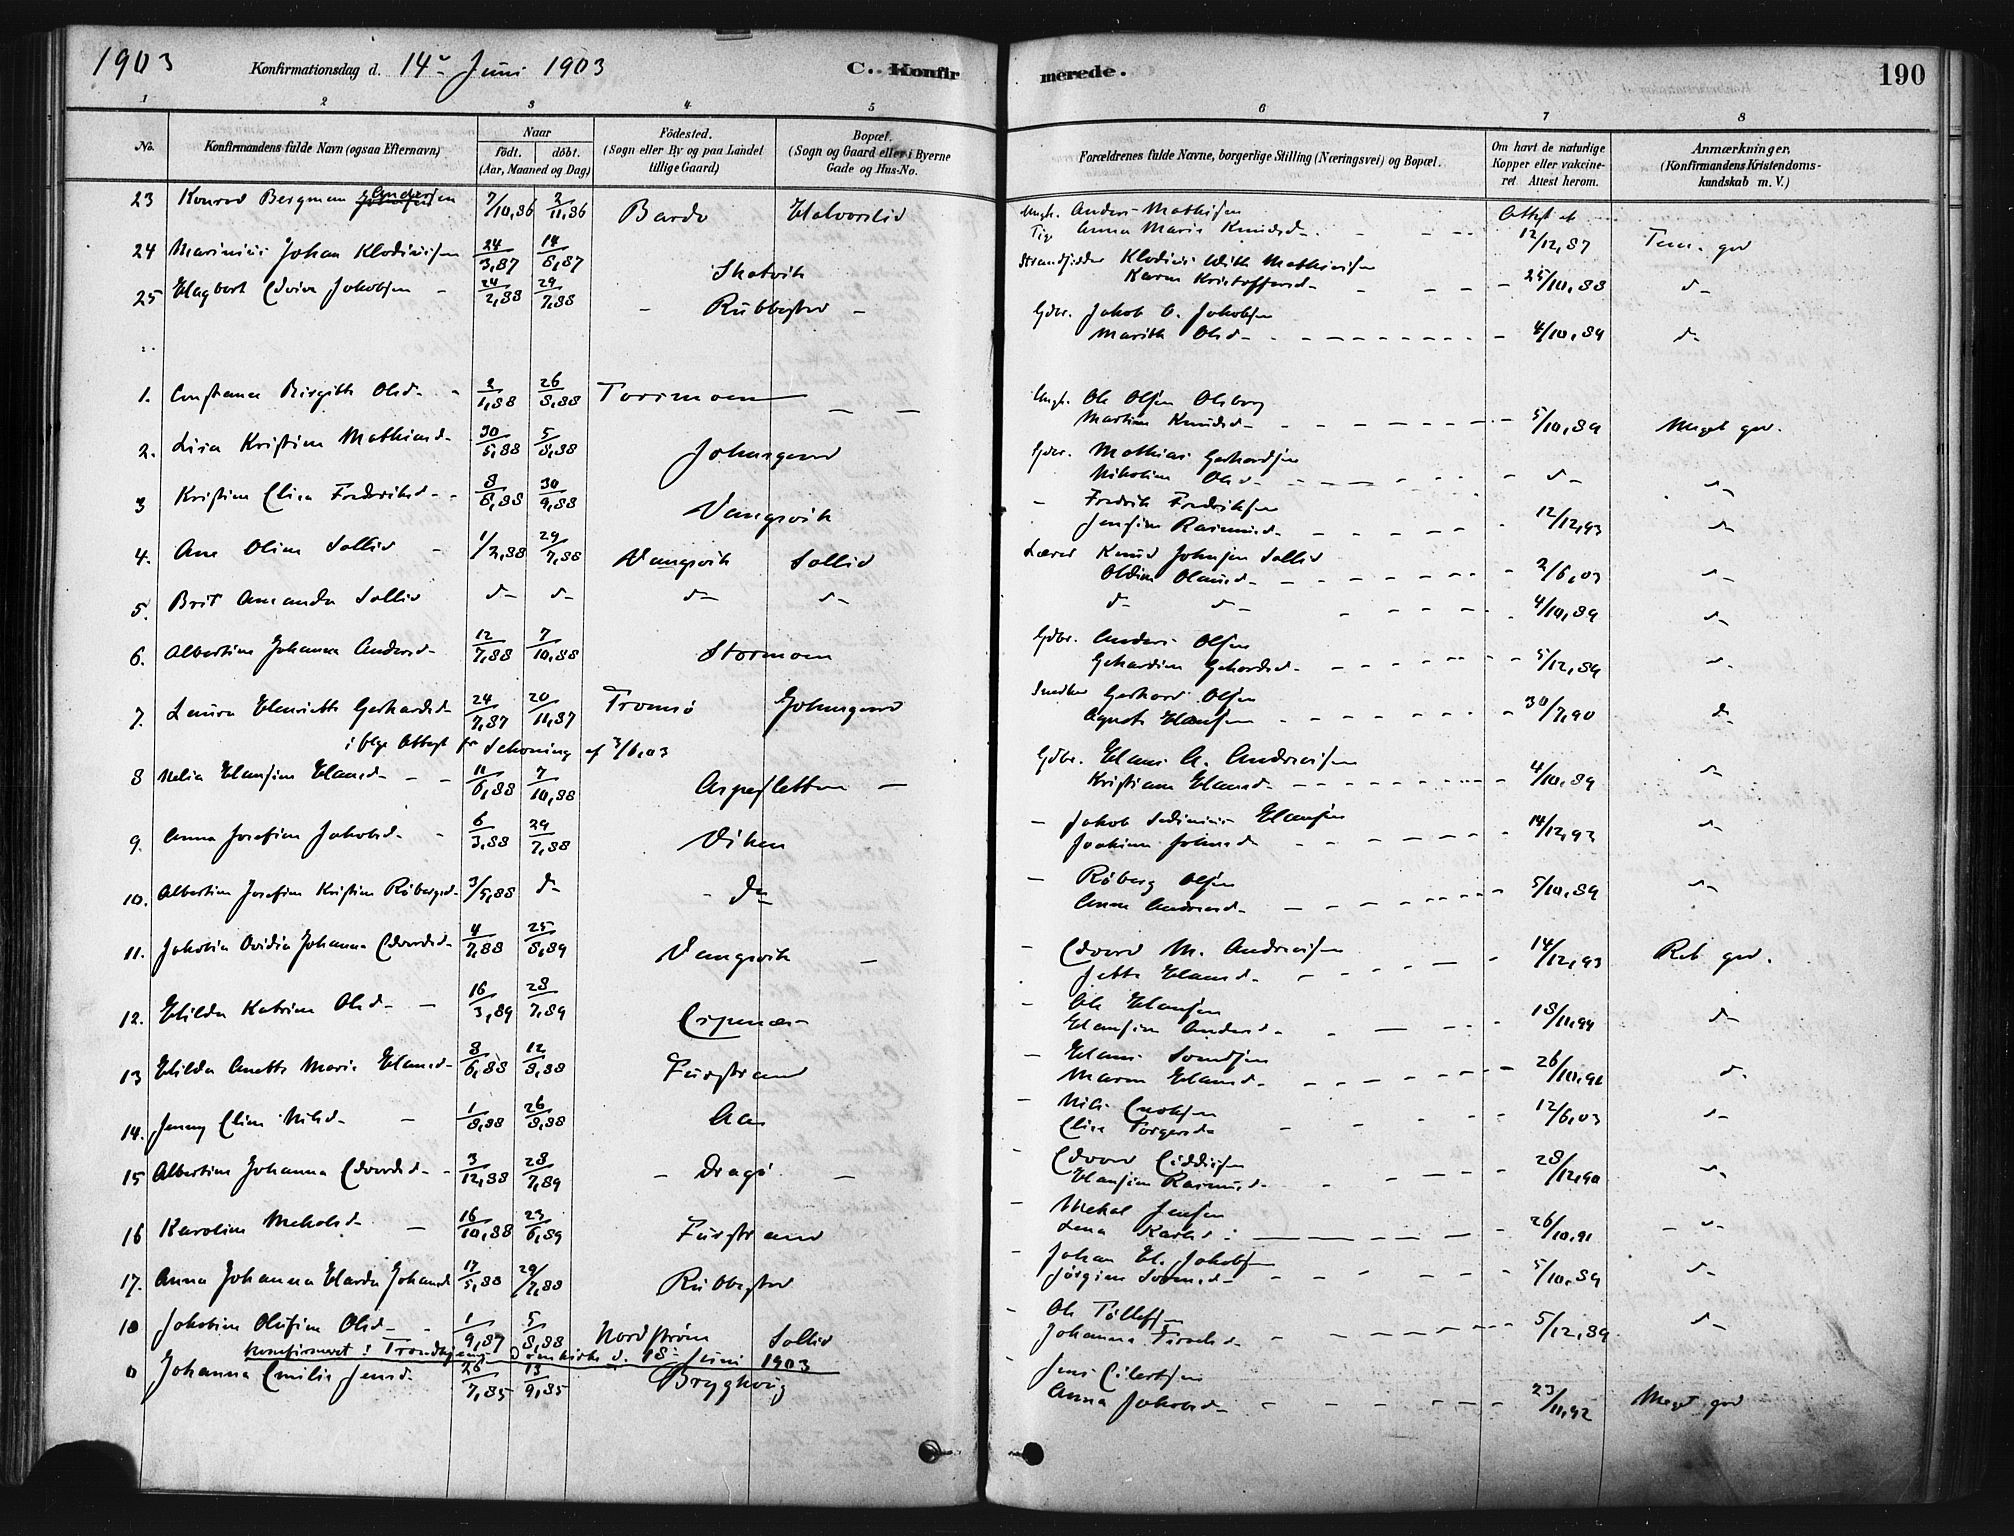 1903
Konfirmationsdag d. 14de Juni 1903
C. Konfirmerede.
190
1 2 3 4 5 6 7 8
No.
Konfirmandens fulde Navn (ogsaa Efternavn)
Naar
født. døbt.
(Aar, Maaned og Dag)
Fødested.
(Sogn eller By og paa Landet
tillige Gaard)
Bopæl.
(Sogn og Gaard eller i Byerne
Gade og Hus-No.
Forældrenes fulde Navne, borgerlige Stilling (Næringsvei) og Bopæl.
Om havt de naturlige
Kopper eller vakcine-
ret Attest herom.
Anmærkninger,
(Konfirmandens Kristendoms-
kundskab m. V.)
23 Konrad Bergman Andersen 7/10,86 2/11,86 Bardo Halvorslid Anders Mathisen
Anna Marie Knudsd. 12/12,87 Tem. god
24 Marinius Johan Klodiusen 24/3,87 14/8,87 Skatvik Strandsidder Klodius With Mathiesen
Karen Kristoffersd. 25/10,88 d-
25 Hagbart Edvin Jakobsen 24/2,88 29/7,88 Rubbestad Gdbr. Jakob O. Jakobsen
Marith Olsd. 4/10,89 d-
1. Constance Birgith Olsd. 2/1,88 26/8,88 Tormoen Ole Olsen Olsborg
Martine Knudsd. 5/10,89 Meget god.
2. Lisa Kristine Mathiasd. 30/5,88 5/8,88 Johnsgaard Gdbr. Mathias Gerhardsen
Nikoline Olsd. d- d-
3 Kristine Elisa Frederiksd. 8/8,88 30/9,88 Vangsvik Fredrik Fredriksen
Jensine Rasmusd. 12/12,93 d-
4. Ane Oline Sollid 1/2,88 29/7,88 Vangsvik Sollid Lærer Knud Johnsen Sollid
Oldine Olausd. 2/6,03 d-
5. Brit Amanda Sollid d- d- d- d- d- d- 4/10,89 d-
6. Albertine Johanna Andersd. 12/7,88 7/10,88 Stormoen Gdbr. Anders Olsen
Gehardine Gehardsd. 5/12,89 d-
7. Laura Henriette Gerhardsd. 24/7,87 20/11,87 Tromsø Johnsgaard Snedker Gerhard Olsen
Agnete Hansen 30/7,90 d-
i følge Attest fr Schøning af 3/6,03
8 Nelia Hansine Hansd. 11/6,88 7/10,88 Aspesletten Gdbr. Hans A. Andreassen
Kristiane Hansd. 4/10,89 d-
9. Anna Josefine Jakobsd. 6/3,88 29/7,88 Viken Jakob Hansen
Joakime Johnsd. 14/12,93 d-
10. Albertine Josefine Kristine Røbergsd. 3/5,88 d- do Røberg Olsen
Anne Andreasd. 5/10,89 d-
11. Jakobia Ovidia Johanna Edvardsd. 4/7,88 25/8,89 Vangsvik Edvard M. Andreassen
Jette Hansd. 14/12,93 Reb god.
12. Hilda Katrine Olsd. 16/3,89 28/7,89 Espenæs Ole Hansen
Hansine Andersd. 18/11,94 d-
13 Hilda Anette Marie Hansd. 8/6,88 12/8,88 Furstrand Hans Svendsen
Maren Hansd. 26/10,91 d.
14. Jenny Eline Nilsd. 1/8,88 26/8,88 Aas Nils Enoksen
Elisa Torgersd. 12/6,03 d-
15 Albertine Johanna Edvardsd. 3/12,88 28/7,89 Dragø Edvard Eiddisen
Hansine Rasmusd. 28/12,90 d-
16 Karoline Mekalsd. 16/10,88 23/6,89 Furstrand Mekal Jensen
Lena Karlsd. 26/10,91 d-
17. Anna Johanna Harda Johansd. 17/5,88 29/7,88 Rubbestad Johan H. Jakobsen
Jørgine Svensd. 5/10,89 d-
18 Jakobine Olufine Olsd. 1/9,87 5/8,88 Nordstrøm Sollid Ole Tøllefsen
Johanna 5/12,89 d-
Konfirmeret i Trondhjems Domkirke d. 18de Juni 1903
0 Johanna Emilie Jensd. 26/7,85 13/9,85 Bryghoug Jens Eilertsen
Anna Jakobsd. 23/11,92 Meget god